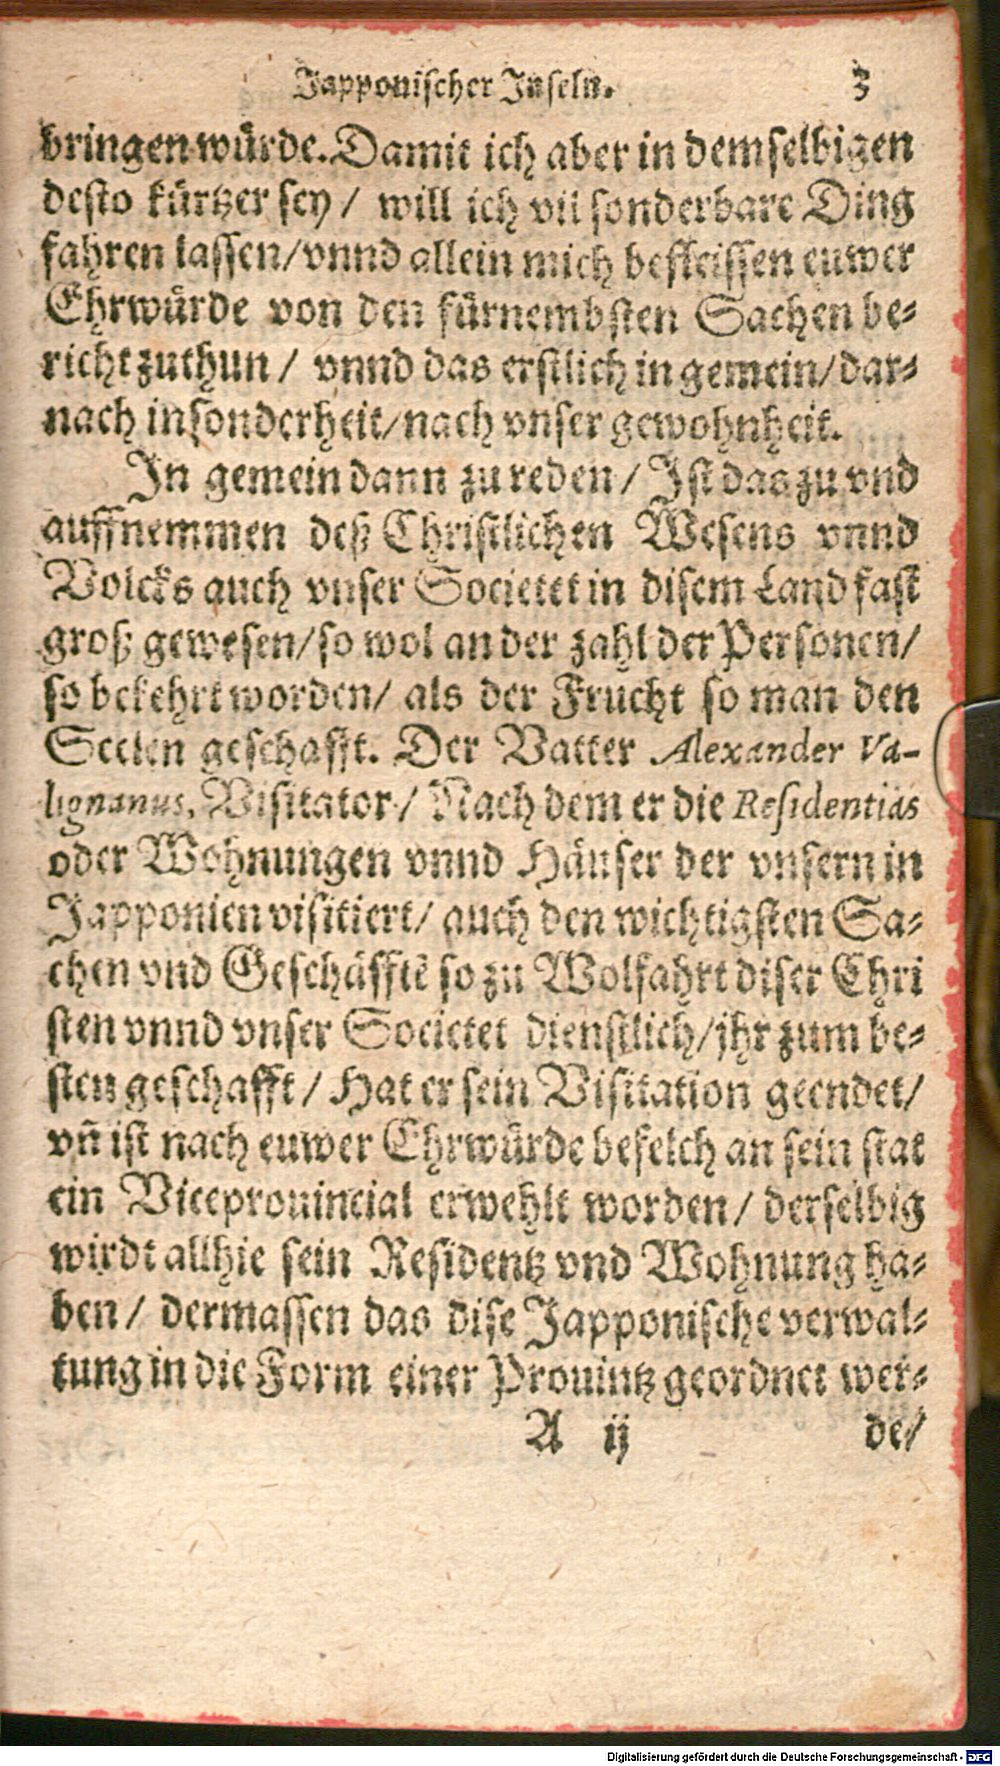 Japponischer Inseln. 3
bringen würde. Damit ich aber in demselbigen
desto kürtzer sey / will ich vil sonderbare Ding
fahren lassen/vnnd allein mich befleissen euwer
Ehrwürde von den fürnembsten Sachen be-
richt zuthun / vnnd das erstlich in gemein/dar-
nach insonderheit/nach vnser gewohnheit.
In gemein dann zu reden / Ist das zu vnd
auffnemmen deß Christlichen Wesens vnnd
Volcks auch vnser Societet in disem Land fast
groß gewesen/so wol an der zahl der Personen/
so bekehrt worden/ als der Frucht so man den
Seelen geschafft. Der Vatter Alexander Va-
lignanus, Visitator / Nach dem er die Residentias
oder Wohnungen vnnd Häuser der vnsern in
Japponien visitiert/ auch den wichtigsten Sa-
chen vnd Geschäfftē so zu Wolfahrt diser Chri
sten vnnd vnser Societet dienstlich/jhr zum be-
sten geschafft / Hat er sein Visitation geendet/
vn̄ ist nach euwer Ehrwürde befelch an sein stat
ein Viceprouincial erwehlt worden / derselbig
wirdt allhie sein Residentz vnd Wohnung ha-
ben / dermassen das dise Japponische verwal-
tung in die Form einer Prouintz geordnet wer-
A ij de/
Digitalisierung gefördert durch die Deutsche Forschungsgemeinschaft - DFG